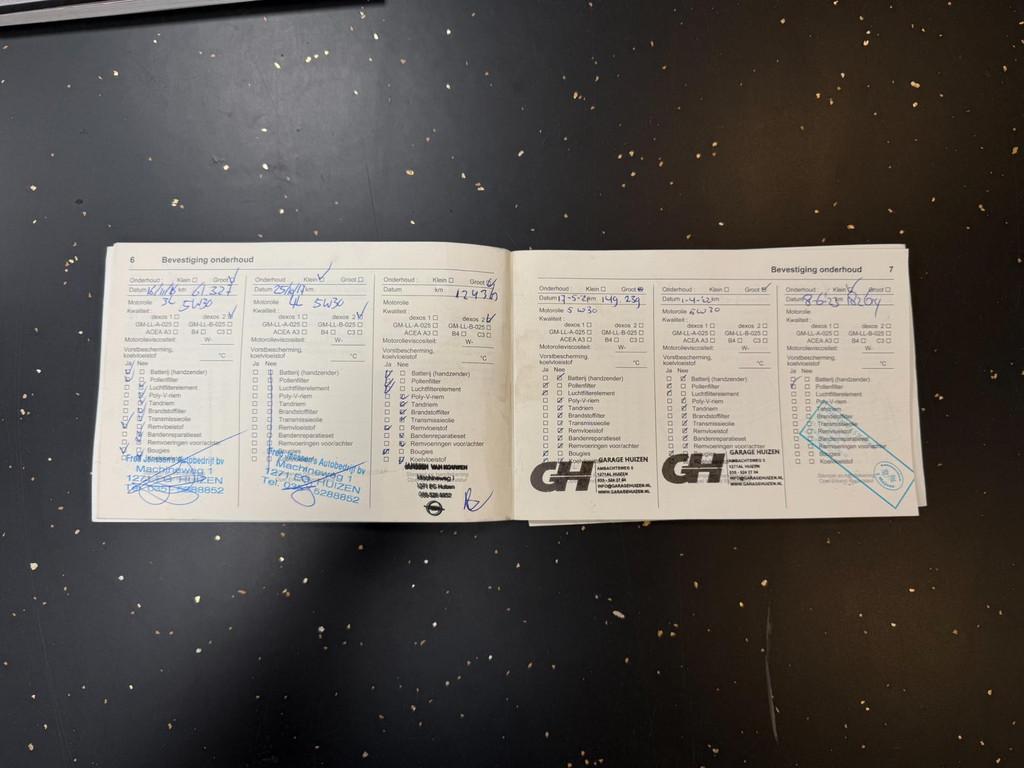 6 Bevestiging onderhoud
Onderhoud : Klein Groot
Datum km 61.327
Motorolie 3L 5W30
Kwaliteit :
dexos 1 dexos 2
GM-LL-A-025 GM-LL-B-025
ACEA A3 B4 C3
Motorolieviscositeit: W-
Vorstbescherming,
koelvloeistof °C
Ja Nee
Batterij (handzender)
Pollenfilter
Luchtfilterelement
Poly-V-riem
Tandriem
Brandstoffilter
Transmissieolie
Remvloeistof
Bandenreparatieset
Remvoeringen voor/achter
Bougies
Fred Janssens Autobedrijf bv
Machineweg 1
1271 EG HUIZEN
5288852
Onderhoud : Klein Groot
Datum km
Motorolie 4L 5W30
Kwaliteit :
dexos 1 dexos 2
GM-LL-A-025 GM-LL-B-025
ACEA A3 B4 C3
Motorolieviscositeit: W-
Vorstbescherming,
koelvloeistof °C
Ja Nee
Batterij (handzender)
Pollenfilter
Luchtfilterelement
Poly-V-riem
Tandriem
Brandstoffilter
Transmissieolie
Remvloeistof
Bandenreparatieset
Remvoeringen voor/achter
Bougies
Janssens Autobedrijf bv
Machineweg 1
1271 EG HUIZEN
Tel. 5288852
Onderhoud : Klein Groot
Datum km
Motorolie
Kwaliteit :
dexos 1 dexos 2
GM-LL-A-025 GM-LL-B-025
ACEA A3 B4 C3
Motorolieviscositeit: W-
Vorstbescherming,
koelvloeistof °C
Ja Nee
Batterij (handzender)
Pollenfilter
Luchtfilterelement
Poly-V-riem
Tandriem
Brandstoffilter
Transmissieolie
Remvloeistof
Bandenreparatieset
Remvoeringen voor/achter
Bougies
Koelvloeistof
JANSSEN VAN KOUWEN
Machineweg 1
1271 EG Huizen
Bevestiging onderhoud 7
Onderhoud : Klein Groot
Datum 17-5-21 km 149.239
Motorolie 5W30
Kwaliteit :
dexos 1 dexos 2
GM-LL-A-025 GM-LL-B-025
ACEA A3 B4 C3
Motorolieviscositeit: W-
Vorstbescherming,
koelvloeistof °C
Ja Nee
Batterij (handzender)
Pollenfilter
Luchtfilterelement
Poly-V-riem
Tandriem
Brandstoffilter
Transmissieolie
Remvloeistof
Bandenreparatieset
Remvoeringen voor/achter
Bougies
GH GARAGE HUIZEN
AMBACHTSWEG 5
1271AL HUIZEN
INFO@GARAGEHUIZEN.NL
WWW.GARAGEHUIZEN.NL
Onderhoud : Klein Groot
Datum 1-4-22 km
Motorolie 5W30
Kwaliteit :
dexos 1 dexos 2
GM-LL-A-025 GM-LL-B-025
ACEA A3 B4 C3
Motorolieviscositeit: W-
Vorstbescherming,
koelvloeistof °C
Ja Nee
Batterij (handzender)
Pollenfilter
Luchtfilterelement
Poly-V-riem
Tandriem
Brandstoffilter
Transmissieolie
Remvloeistof
Bandenreparatieset
Remvoeringen voor/achter
Bougies
GH GARAGE HUIZEN
AMBACHTSWEG 5
1271AL HUIZEN
INFO@GARAGEHUIZEN.NL
WWW.GARAGEHUIZEN.NL
Onderhoud : Klein Groot
Datum 8-6-23
Motorolie
Kwaliteit :
dexos 1 dexos 2
GM-LL-A-025 GM-LL-B-025
ACEA A3 B4 C3
Motorolieviscositeit: W-
Vorstbescherming,
koelvloeistof °C
Ja Nee
Batterij (handzender)
Pollenfilter
Luchtfilterelement
Poly-V-riem
Tandriem
Brandstoffilter
Transmissieolie
Remvloeistof
Bandenreparatieset
Remvoeringen voor/achter
Bougies
Koelvloeistof